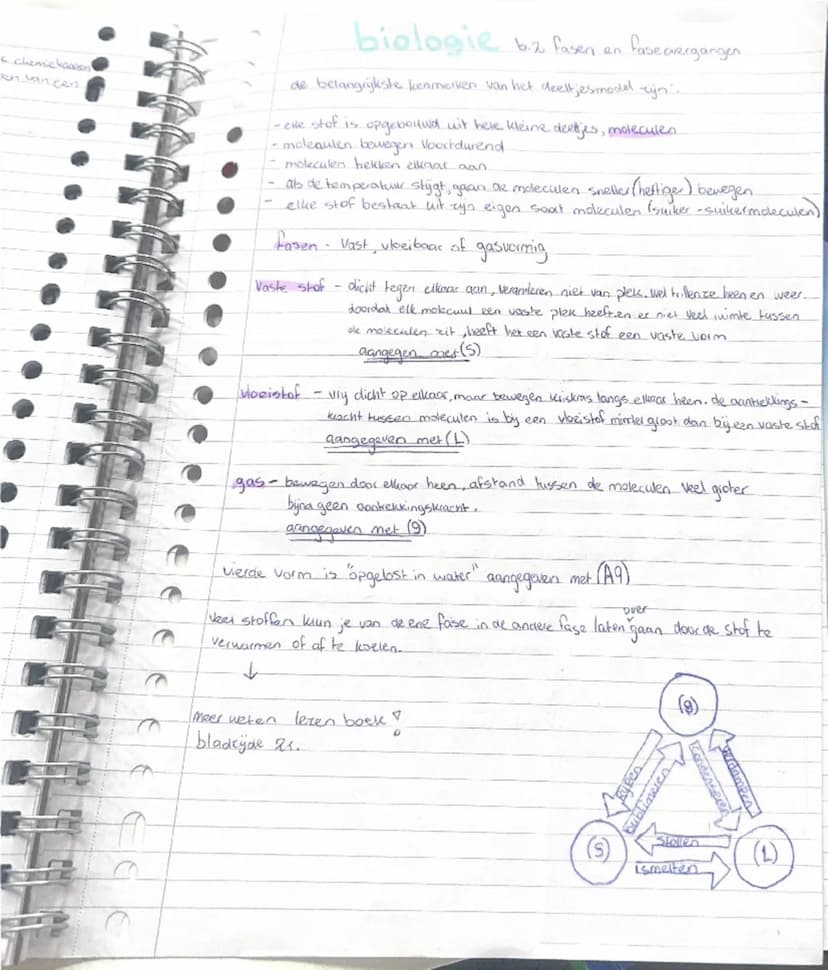 biologie 6.2 fasen en faseovergangen
de belangrijkste kenmerken van het deeltjesmodel zijn:
- elke stof is opgebouwd uit hele kleine deeltjes, moleculen
- moleculen bewegen voortdurend
- moleculen trekken elkaar aan
- als de temperatuur stijgt, gaan de moleculen sneller (heftiger) bewegen
- elke stof bestaat uit zijn eigen soort moleculen (suiker - suikermoleculen)
fasen - vast, vloeibaar of gasvormig
vaste stof - dicht tegen elkaar aan, veranderen niet van plek. wel trillen ze heen en weer.
doordat elk molecuul een vaste plek heeft en er niet veel ruimte tussen
de moleculen zit, heeft het een vaste stof een vaste vorm
aangegen met (S)
vloeistof - vrij dicht op elkaar, maar bewegen kriskras langs elkaar heen. de aantrekkings-
kracht tussen moleculen is bij een vloeistof minder groot dan bij een vaste stof
aangegeven met (L)
gas - bewegen door elkaar heen, afstand tussen de moleculen veel groter
bijna geen aantrekkingskracht.
aangegeven met (g)
vierde vorm is "opgelost in water" aangegeven met (Aq)
over
veel stoffen kun je van de ene fase in de andere fase laten gaan door de stof te
verwarmen of af te koelen.
↓
meer weten lezen boek!
bladzijde 21.
(g)
rijpen
sublimeren
condenseren
verdampen
(S)
stollen
smelten
(L)